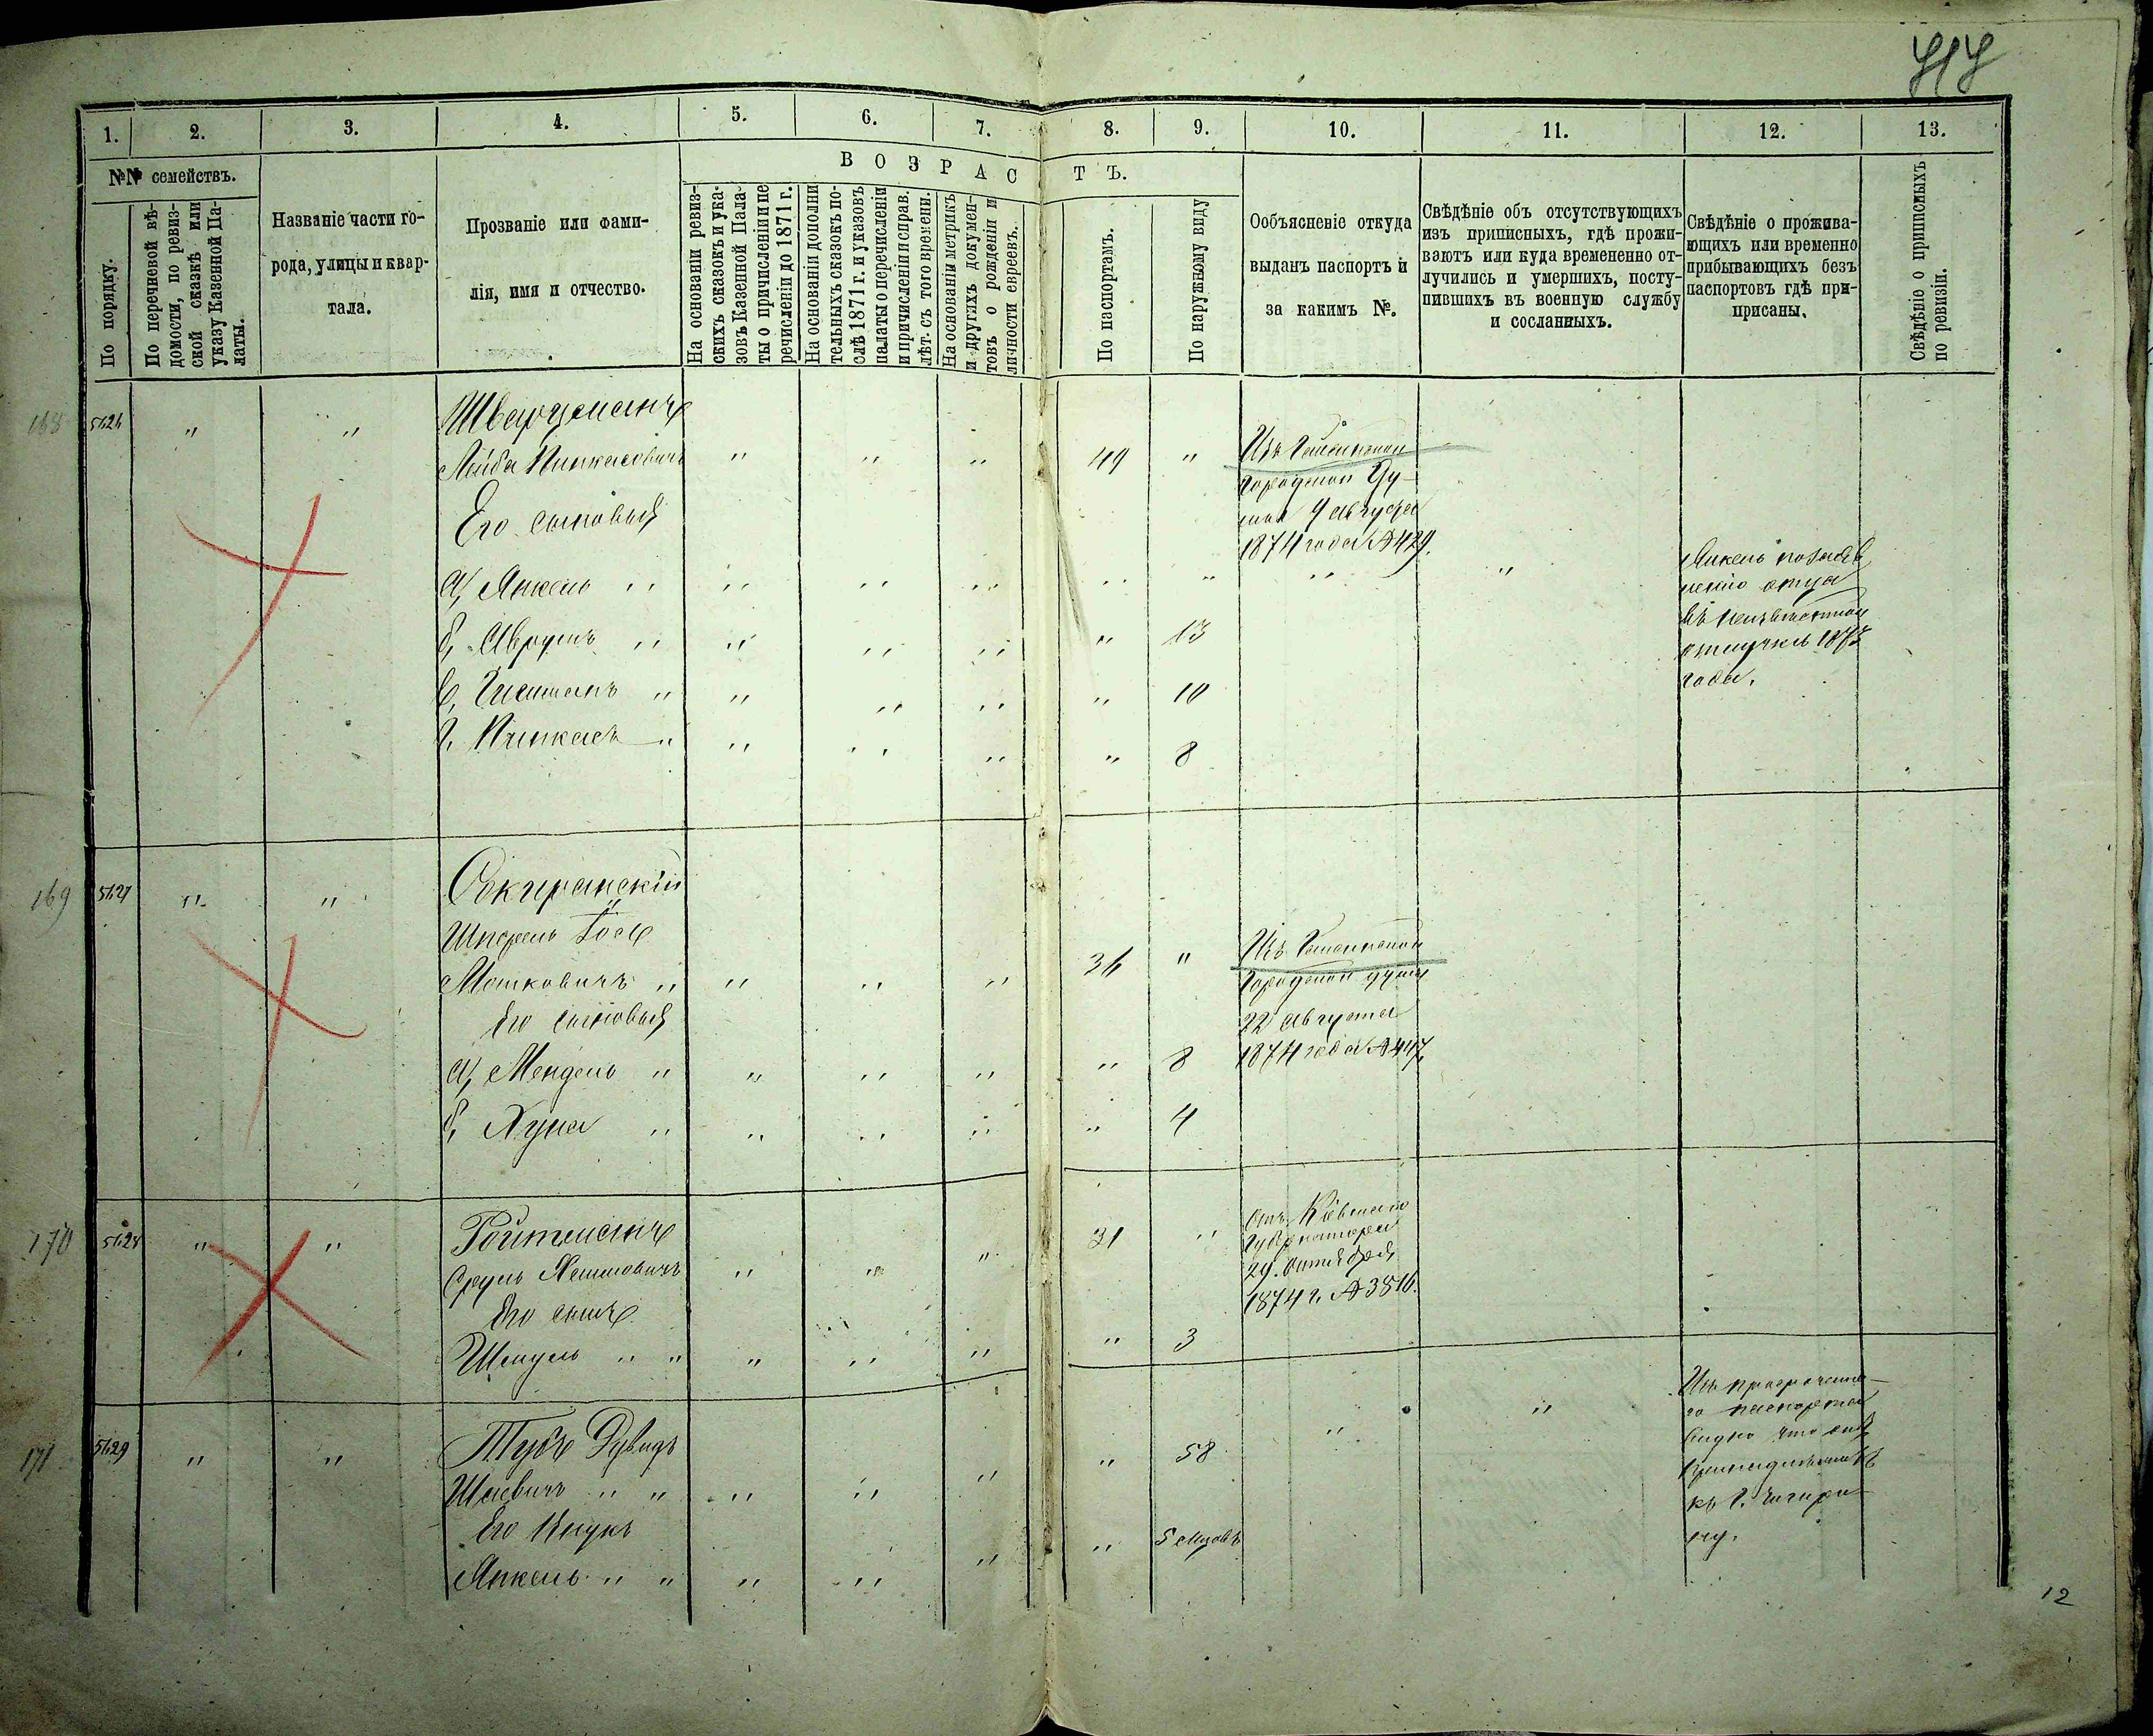 717
1. 2. 3. 4. 5. 6. 7. 8. 9. 10. 11. 12. 13.
№№ семействъ.
По порядку.
По перечневой вѣ-
домости, по ревиз-
ской сказкѣ или
указу Казенной Па-
латы.
Названіе части го-
рода, улицы и квар-
тала.
Прозваніе или фами-
лія, имя и отчество.
ВОЗРАСТЪ.
На основаніи ревиз-
скихъ сказокъ и ука-
зовъ Казенной Пала-
ты о причисленіи и пе
речисленіи до 1871 г.
На основаніи дополни
тельныхъ сказокъ по-
слѣ 1871 г. и указовъ
палаты о перечисленіи
и причисленіи и справ.
лѣт. съ того времени.
На основаніи метрикъ
и другихъ докумен-
товъ о рожденіи и
личности евреевъ.
По паспортамъ.
По наружному виду
Ообъясненіе откуда
выданъ паспортъ и
за какимъ №.
Свѣдѣніе объ отсутствующихъ
изъ приписныхъ, гдѣ прожи-
ваютъ или куда временено от-
лучились и умершихъ, посту-
пившихъ въ военную службу
и сосланныхъ.
Свѣдѣніе о прожива-
ющихъ или временно
прибывающихъ безъ
паспортовъ гдѣ при-
писаны.
Свѣдѣніо о приписныхъ
по ревизіи.
168 5626 " " Шварцманъ
Лейба Пинкасовичъ " " " 49 " Изъ
городской Ду-
мы 9 августа
1874 года №429.
Его сыновья
а, Янкель " " " " " " " "
б, Аврумъ " " " " " 13
в, " " " " " 10
г, Пинкасъ " " " " " 8
Янкель по заяв
ленію отца
въ неизвѣстной
отлучкѣ 187
года.
169 5627 " " Сокирянскій
Шперель Іось
Мошковичъ " " " " 36 " Изъ
городской думы
22 августа
1874 года № 447,
Его сыновья
а, Мендель " " " " " 8
б, Хуна " " " " " 4
170 5628 " " Ройтманъ
Сруль " " " 31 " Отъ Кіевскаго
Губернатора
29. Октября
1874 г. № 3816.
Его сынъ
" " " " " " 3
171 5629 " " Дувидъ
Шаевичъ " " " " " " 58 " "
Его внукъ
Янкель " " " " " " 5 мцовъ
Изъ просроченна-
го паспорта
видно что онъ
принадлежитъ
къ г. Чигири-
ну.
12